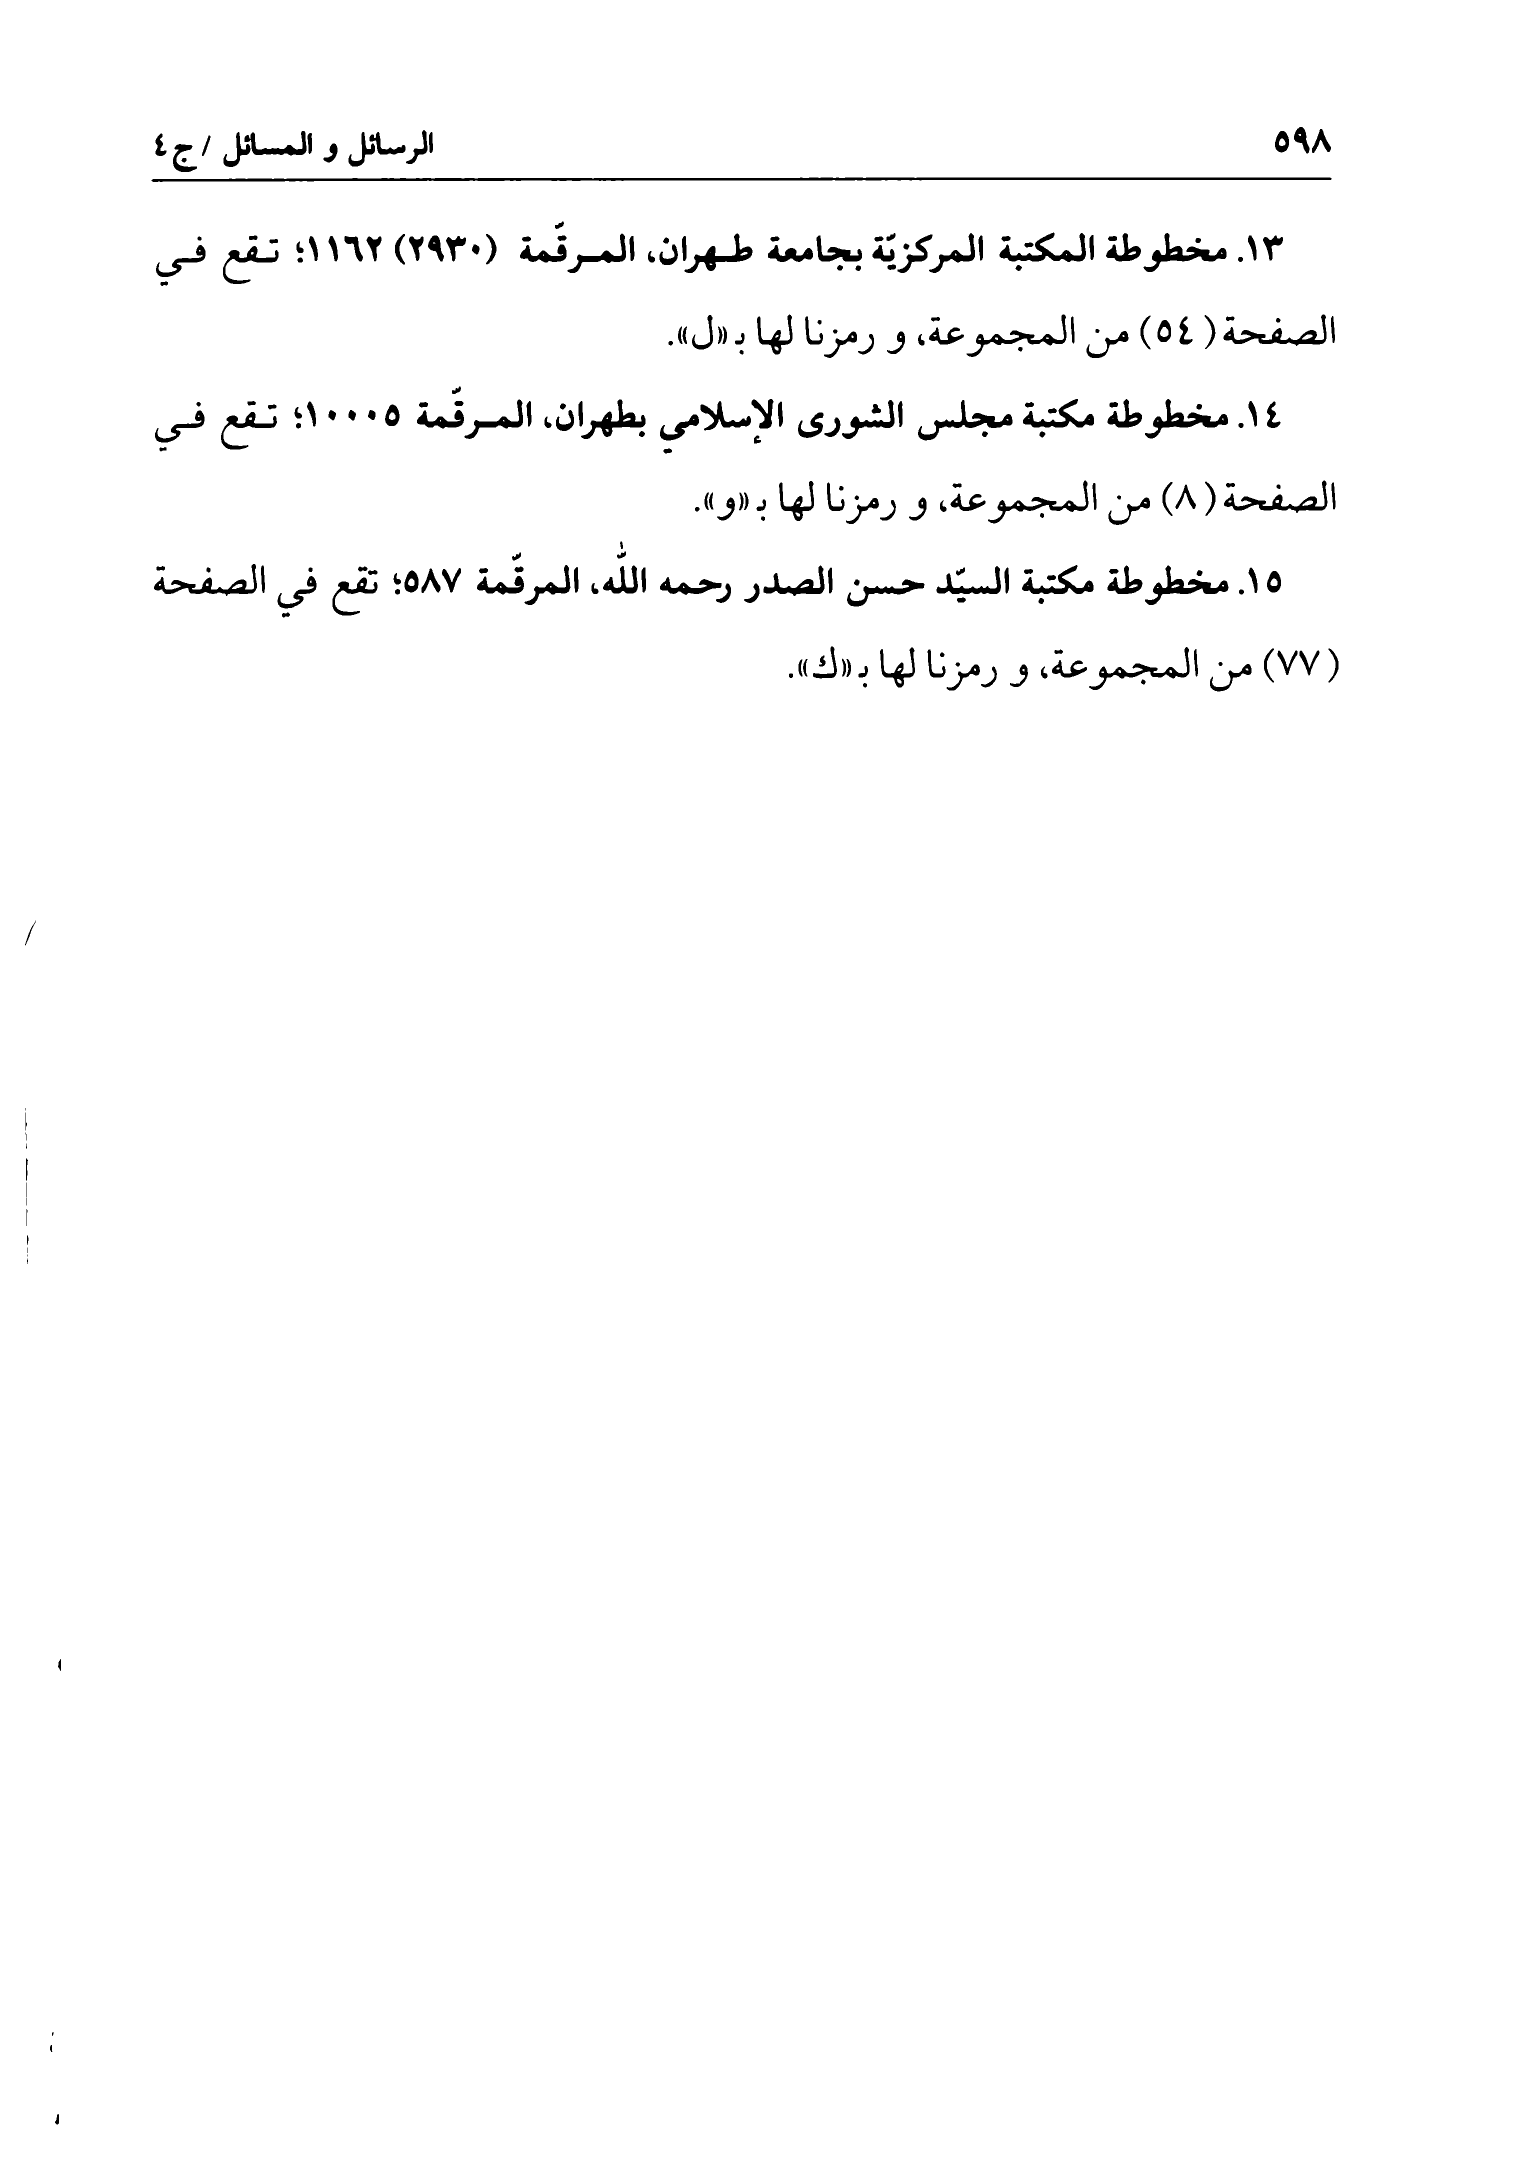 ٥٩٨ الرسائل و المسائل / ج٤
١٣. مخطوطة المكتبة المركزيّة بجامعة طهران، المرقّمة (٢٩٣٠) ١١٦٢؛ تقع في
الصفحة (٥٤) من المجموعة، و رمزنا لها بـ «ل».
١٤. مخطوطة مكتبة مجلس الشورى الإسلامي بطهران، المرقّمة ١٠٠٠٥؛ تقع في
الصفحة (٨) من المجموعة، و رمزنا لها بـ «و».
١٥. مخطوطة مكتبة السيّد حسن الصدر رحمه اللّٰه، المرقّمة ٥٨٧؛ تقع في الصفحة
(٧٧) من المجموعة، و رمزنا لها بـ «ك».